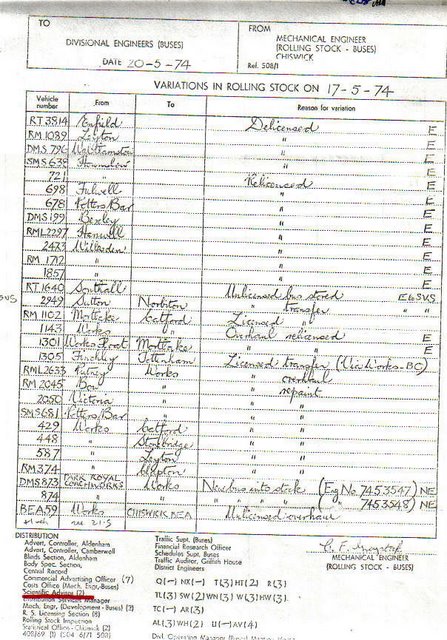 TO
DIVISIONAL ENGINEERS (BUSES)
DATE 20-5-74
FROM
MECHANICAL ENGINEER
(ROLLING STOCK - BUSES)
CHISWICK
Ref. 508/1
VARIATIONS IN ROLLING STOCK ON 17-5-74
Vehicle number From To Reason for variation
RT 3814 Enfield Delicensed E
RM 1089 Leyton " E
DMS 796 Walthamstow " E
SMS 638 Hounslow " E
721 " Relicensed E
698 Fulwell " E
678 Potters Bar " E
DMS 199 Bexley " E
RML 2297 Hanwell " E
2473 Willesden " E
RM 1712 " " E
1857 " " E
RT 1640 Southall Unlicensed bus stored E & SUS
2949 Sutton Norbiton " transfer " "
RM 1102 Mortlake Catford Licensed "
1143 Works Overhaul relicensed E
1301 Works Float Mortlake " E
1305 Finchley Tottenham Licensed transfer (Via Works-BC)
RML 2633 Putney Works " overhaul
RM 2045 Bow " " repaint
2050 Victoria " " "
SMS 681 Potters Bar " " "
429 Works Catford " "
448 " Stockbridge " "
587 " Leyton " "
RM 374 " Clapton " "
DMS 873 PARK ROYAL COACHWORKS Works New bus into stock (Eng No. 7453547) NE
874 " " " ( " 7453548) NE
BEA 59 Works CHISWICK BEA Unlicensed overhaul
DISTRIBUTION
Advert. Controller, Aldenham
Advert. Controller, Camberwell
Blinds Section, Aldenham
Body Spec. Section,
Central Record
Commercial Advertising Officer (7)
Costs Office (Mech. Engr. Buses)
Scientific Adviser (2)
Distribution Services Manager
Mech. Engr. (Development - Buses) (3)
R. S. Licensing Section (8)
Rolling Stock Inspection
Statistical Office - Chiswick (2)
Traffic Supt. (Buses)
Financial Research Officer
Schedules Supt. Buses
Traffic Auditor, Griffith House
District Engineers
Q(-) NX(-) T(3) HT(2) R(3)
TL(3) SW(2) WN(3) GM(3) HW(3)
TC(-) AR(3)
AL(3) WH(2) U(-) AV(4)
MECHANICAL ENGINEER
(ROLLING STOCK - BUSES)